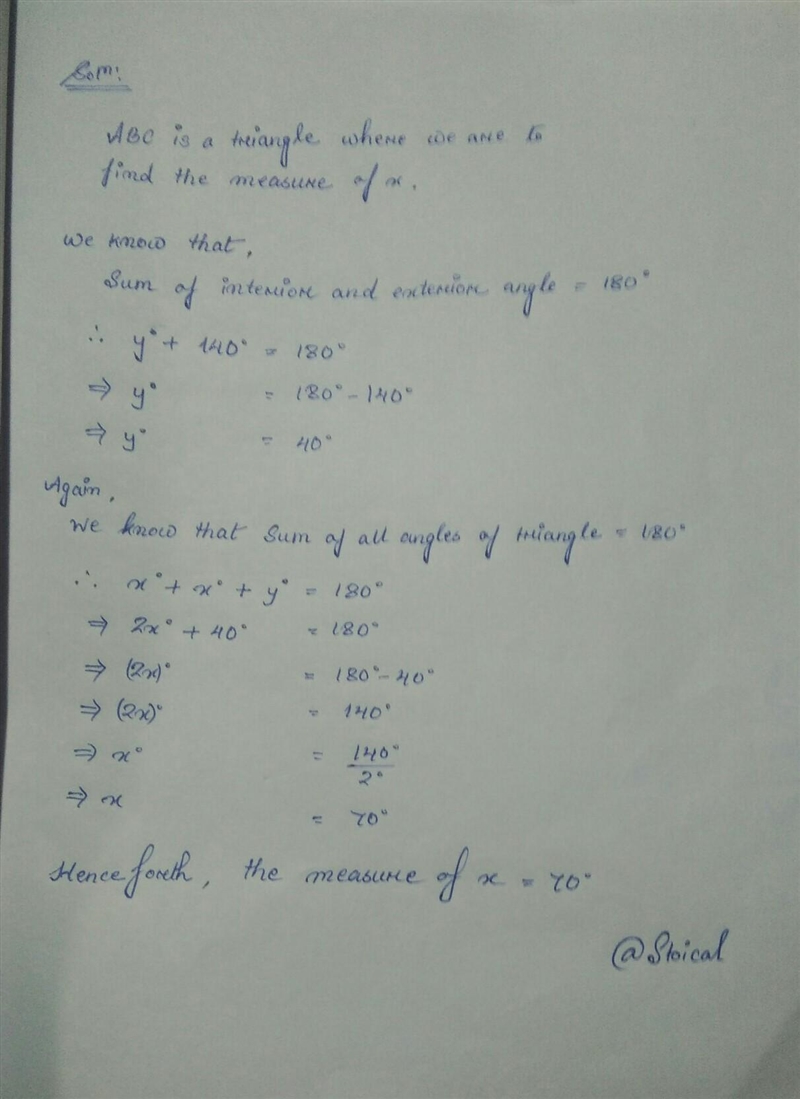 Soln:
ABC is a triangle where we are to
find the measure of x.
We know that,
Sum of interior and exterior angle = 180°
∴ y° + 140° = 180°
⇒ y° = 180° - 140°
⇒ y° = 40°
Again,
We know that Sum of all angles of triangle = 180°
∴ x° + x° + y° = 180°
⇒ 2x° + 40° = 180°
⇒ (2x)° = 180° - 40°
⇒ (2x)° = 140°
⇒ x° = 140°/2°
⇒ x = 70°
Henceforth, the measure of x = 70°
@Stoical